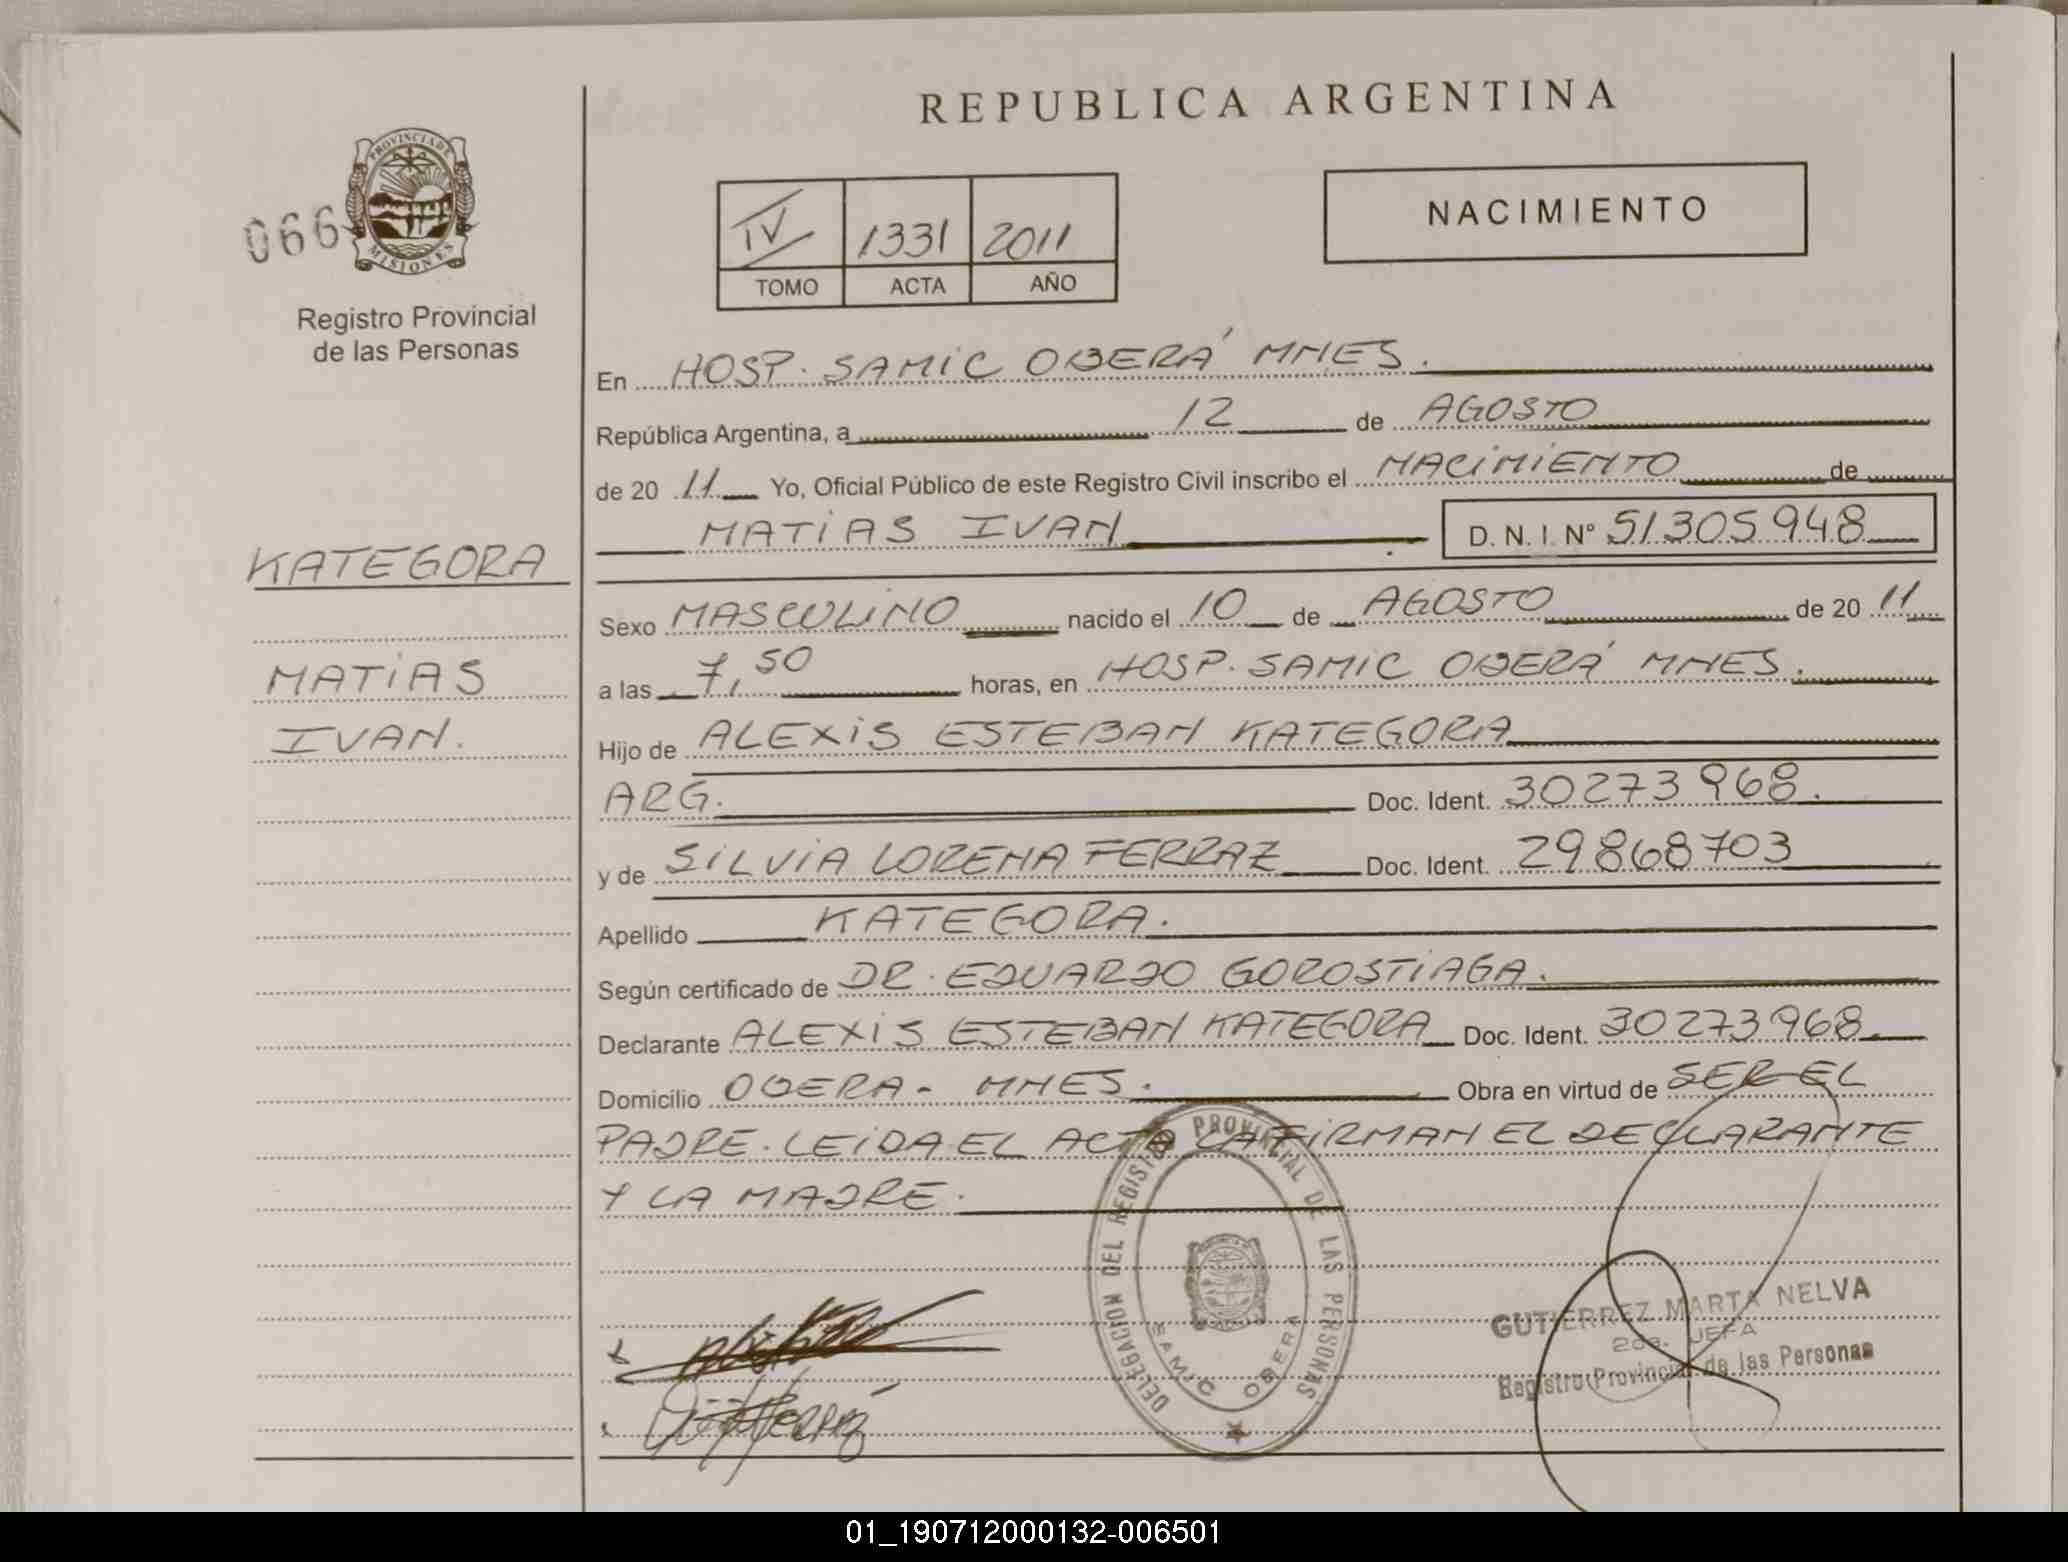 REPUBLICA ARGENTINA
PROVINCIA DE
MISIONES
066
Registro Provincial
de las Personas
IV 1331 2011
TOMO ACTA AÑO
NACIMIENTO
En HOSP. SAMIC OBERÁ MNES.
República Argentina, a 12 de AGOSTO
de 20 11 Yo, Oficial Público de este Registro Civil inscribo el NACIMIENTO de
MATIAS IVAN D. N. I. Nº 51305948
KATEGORA
Sexo MASCULINO nacido el 10 de AGOSTO de 20 11
MATIAS
a las 7,50 horas, en HOSP. SAMIC OBERÁ MNES.
IVAN.
Hijo de ALEXIS ESTEBAN KATEGORA
ARG. Doc. Ident. 30273968.
y de SILVIA LORENA FERRAZ Doc. Ident. 29868703
Apellido KATEGORA.
Según certificado de DR. EDUARDO GOROSTIAGA.
Declarante ALEXIS ESTEBAN KATEGORA Doc. Ident. 30273968.
Domicilio OBERA - MNES. Obra en virtud de SER EL
PADRE. LEIDA EL ACTA LA FIRMAN EL DECLARANTE
Y LA MADRE.
DELEGACION DEL REGISTRO PROVINCIAL DE LAS PERSONAS
SAMIC OBERA
GUTIERREZ MARTA NELVA
2da. JEFA
Registro Provincial de las Personas
01_190712000132-006501